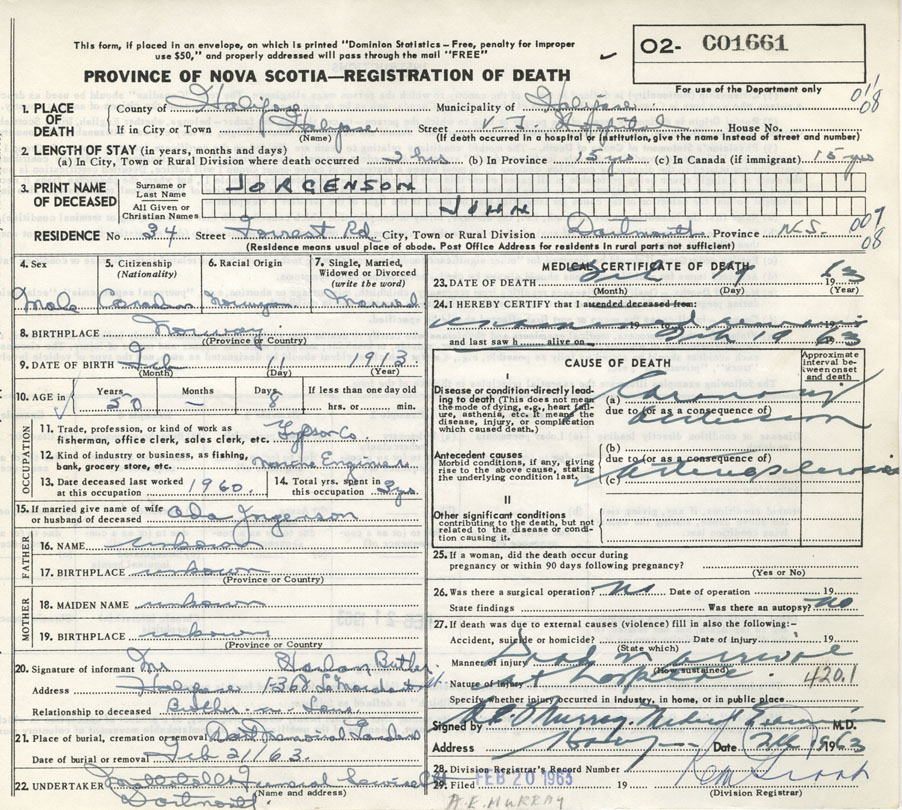 This form, if placed in an envelope, on which is printed "Dominion Statistics – Free, penalty for improper
use $50," and properly addressed will pass through the mail "FREE"
O2- C01661
PROVINCE OF NOVA SCOTIA—REGISTRATION OF DEATH
For use of the Department only
1. PLACE OF DEATH
County of Halifax Municipality of Halifax
If in City or Town Halifax Street V. G. Hospital House No.
(Name) (If death occurred in a hospital or institution, give the name instead of street and number)
2. LENGTH OF STAY (in years, months and days)
(a) In City, Town or Rural Division where death occurred 2 hrs (b) In Province 15 yrs (c) In Canada (if immigrant) 15 yrs
3. PRINT NAME OF DECEASED
Surname or Last Name JORGENSON
All Given or Christian Names JOHN
RESIDENCE No 34 Street Forrest Rd. City, Town or Rural Division Dartmouth Province N.S.
(Residence means usual place of abode. Post Office Address for residents in rural parts not sufficient)
007
08
4. Sex
Male
5. Citizenship (Nationality)
Canadian
6. Racial Origin
Norwegian
7. Single, Married, Widowed or Divorced (write the word)
Married
8. BIRTHPLACE Norway
(Province or Country)
9. DATE OF BIRTH Feb 11 1913
(Month) (Day) (Year)
10. AGE in Years 50 Months — Days 8 If less than one day old hrs. or min.
OCCUPATION
11. Trade, profession, or kind of work as
fisherman, office clerk, sales clerk, etc.
12. Kind of industry or business, as fishing,
bank, grocery store, etc. Marine Engineers
13. Date deceased last worked at this occupation 1960.
14. Total yrs. spent in this occupation yrs
15. If married give name of wife
or husband of deceased Ada Jorgenson
FATHER
16. NAME unknown
17. BIRTHPLACE unknown
(Province or Country)
MOTHER
18. MAIDEN NAME unknown
19. BIRTHPLACE unknown
(Province or Country)
20. Signature of informant Mr Butler
Address Halifax 1368 LeMarchant St.
Relationship to deceased Brother-in-Law
21. Place of burial, cremation or removal Dart Memorial Gardens
Date of burial or removal Feb 21/63.
22. UNDERTAKER
(Name and address)
Dartmouth
MEDICAL CERTIFICATE OF DEATH
23. DATE OF DEATH Feb 19 1963
(Month) (Day) (Year)
24. I HEREBY CERTIFY that I attended deceased from:
19 to 19
and last saw h alive on Feb 19 1963
CAUSE OF DEATH
Approximate interval between onset and death
I
Disease or condition directly leading to death (This does not mean the mode of dying, e.g., heart failure, asthenia, etc. It means the disease, injury, or complication which caused death.)
(a) Coronary
due to (or as a consequence of)
occlusion
Antecedent causes
Morbid conditions, if any, giving rise to the above cause, stating the underlying condition last.
(b)
due to (or as a consequence of)
(c) Arteriosclerosis
II
Other significant conditions
contributing to the death, but not related to the disease or condition causing it.
25. If a woman, did the death occur during
pregnancy or within 90 days following pregnancy?
(Yes or No)
26. Was there a surgical operation? No Date of operation 19
State findings Was there an autopsy? no
27. If death was due to external causes (violence) fill in also the following:-
Accident, suicide or homicide? Date of injury 19
(State which)
Manner of injury Dead on arrival
(How sustained)
Nature of injury at hospital 420.1
Specify whether injury occurred in industry, in home, or in public place
Signed by Murray, Medical Examiner M.D.
Address Date Feb 1963
28. Division Registrar's Record Number
29. Filed FEB 20 1963 19
(Division Registrar)
A.E. MURRAY